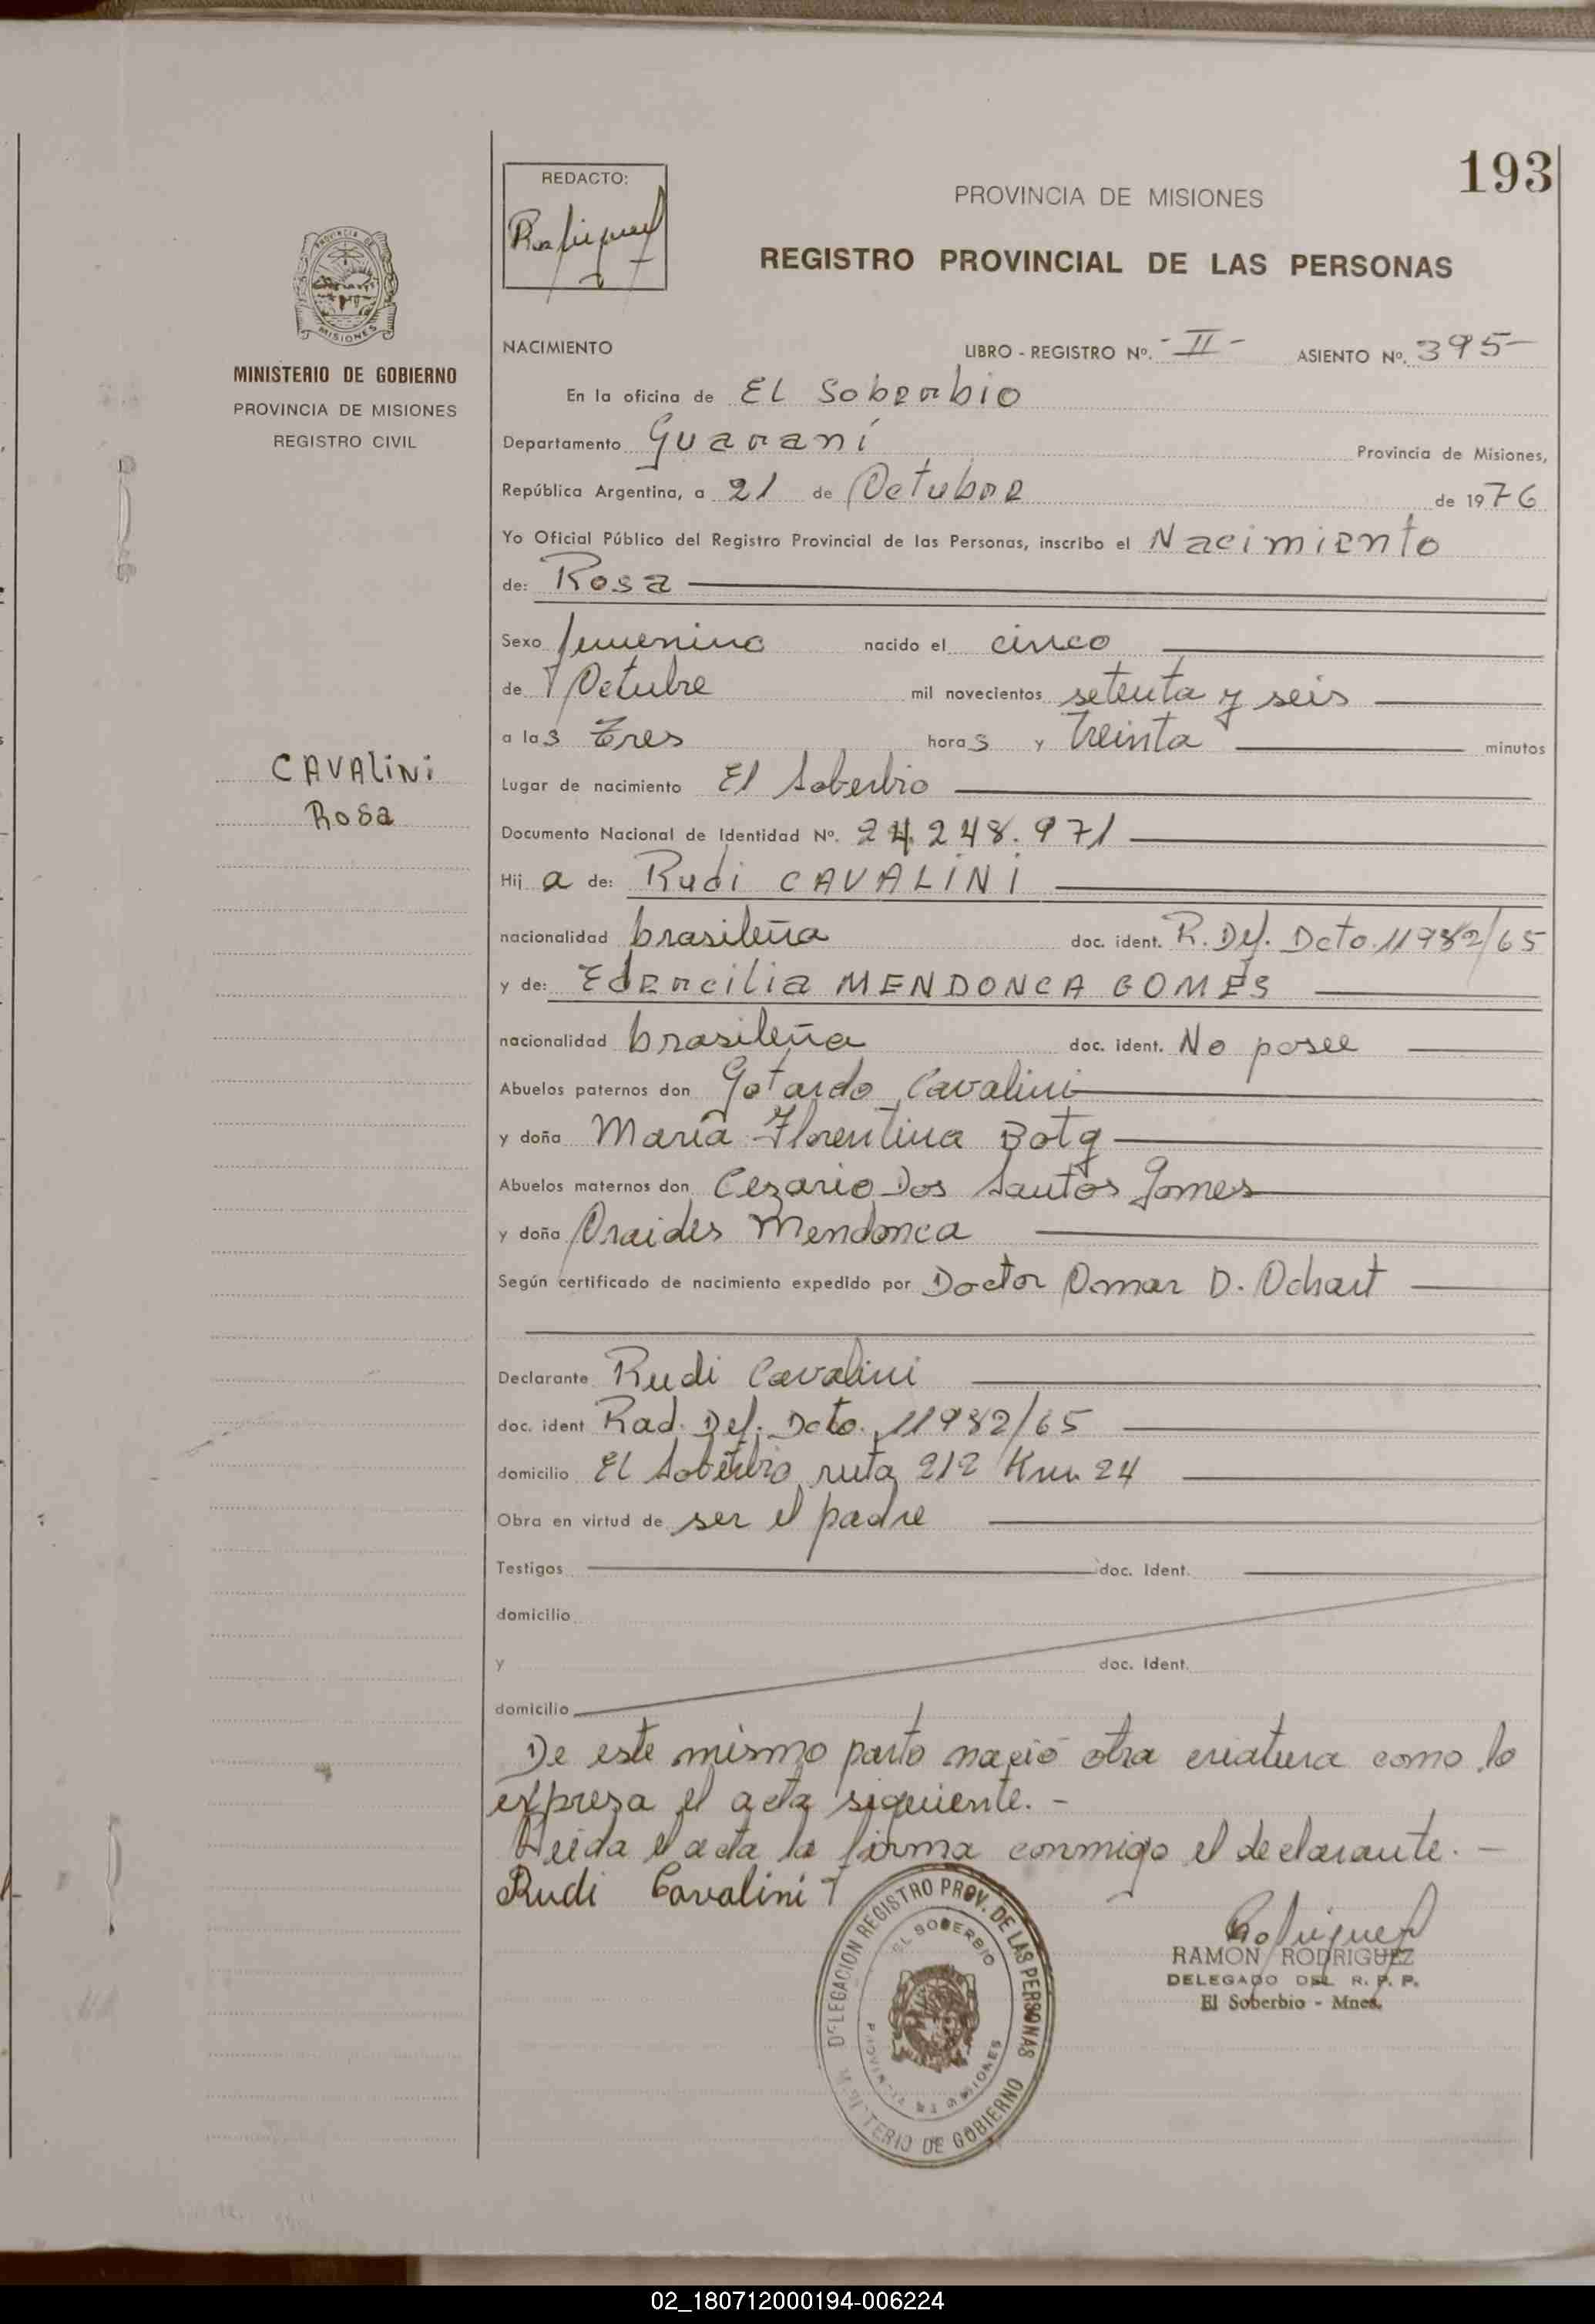 193
REDACTO:
PROVINCIA DE MISIONES
REGISTRO PROVINCIAL DE LAS PERSONAS
PROVINCIA DE
MISIONES
MINISTERIO DE GOBIERNO
PROVINCIA DE MISIONES
REGISTRO CIVIL
CAVALINI
Rosa
NACIMIENTO LIBRO - REGISTRO Nº. - II - ASIENTO Nº. 395-
En la oficina de EL Soberbio
Departamento Guaraní Provincia de Misiones,
República Argentina, a 21 de Octubre de 1976
Yo Oficial Público del Registro Provincial de las Personas, inscribo el Nacimiento
de: Rosa
Sexo femenino nacido el cinco
de Octubre mil novecientos setenta y seis
a las tres horas y treinta minutos
Lugar de nacimiento El Soberbio
Documento Nacional de Identidad Nº. 24.248.971
Hij a de: Rudi CAVALINI
nacionalidad brasileña doc. ident. R. Def. Dcto. 11982/65
y de: Edercilia MENDONCA GOMES
nacionalidad brasileña doc. ident. No posee
Abuelos paternos don Gotardo Cavalini
y doña María Florentina
Abuelos maternos don Cezario Dos Santos Gomes
y doña Oraides Mendonca
Según certificado de nacimiento expedido por Doctor Omar D. Ochart
Declarante Rudi Cavalini
doc. ident Rad. Def. Dcto. 11982/65
domicilio El Soberbio ruta 212 Km 24
Obra en virtud de ser el padre
Testigos doc. Ident.
domicilio
y doc. Ident.
domicilio
De este mismo parto nació otra criatura como lo
expresa el acta siguiente. -
Leida el acta la firma conmigo el declarante. -
Rudi Cavalini
DELEGACION REGISTRO PROV. DE LAS PERSONAS
EL SOBERBIO
PROVINCIA DE MISIONES
MINISTERIO DE GOBIERNO
Rodriguez
RAMON RODRIGUEZ
DELEGADO DEL R. P. P.
El Soberbio - Mnes.
02_180712000194-006224